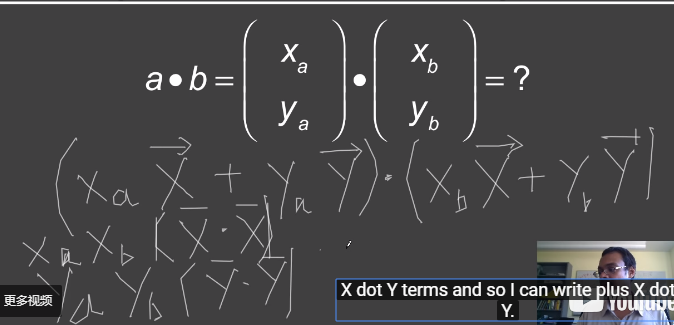 a • b = ( x_a y_a ) • ( x_b y_b ) = ?
(x_a X⃗ + y_a Y⃗) · (x_b X⃗ + y_b Y⃗)
x_a x_b (X̅ · X̅)
y_a y_b (Y̅ · Y̅)
X dot Y terms and so I can write plus X dot
Y.
更多视频
YouTube